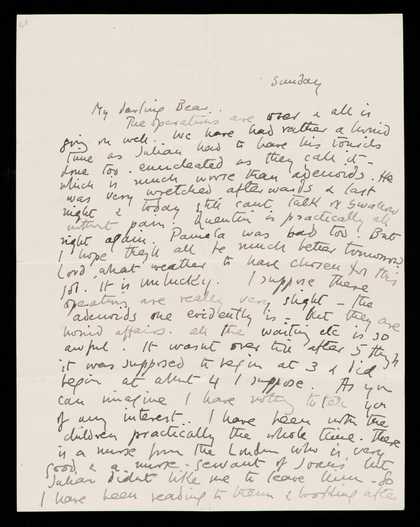 Sunday
My darling Bear.
The operations are over & all is
going on well. We have had rather a horrid
time as Julian had to have his tonsils
done too. enucleated as they call it –
which is much worse than adenoids. He
was very wretched afterwards & last
night & today still cant talk or swallow
without pain. Quentin is practically all
right again. Pamela was bad too. But
I hope they'll all be much better tomorrow
Lord what weather to have chosen for this
job. It is unlucky. I suppose these
operations are really very slight – the
adenoids one evidently is – but they are
horrid affairs. all the waiting etc is so
awful. It wasn't over till after 5 though
it was supposed to begin at 3 & did
begin at about 4 I suppose. As you
can imagine I have nothing to tell you
of any interest. I have been with the
children practically the whole time. There
is a nurse from the London who is very
good & a nurse-servant of Joans but
Julian didnt like me to leave him. So
I have been reading to them & looking after